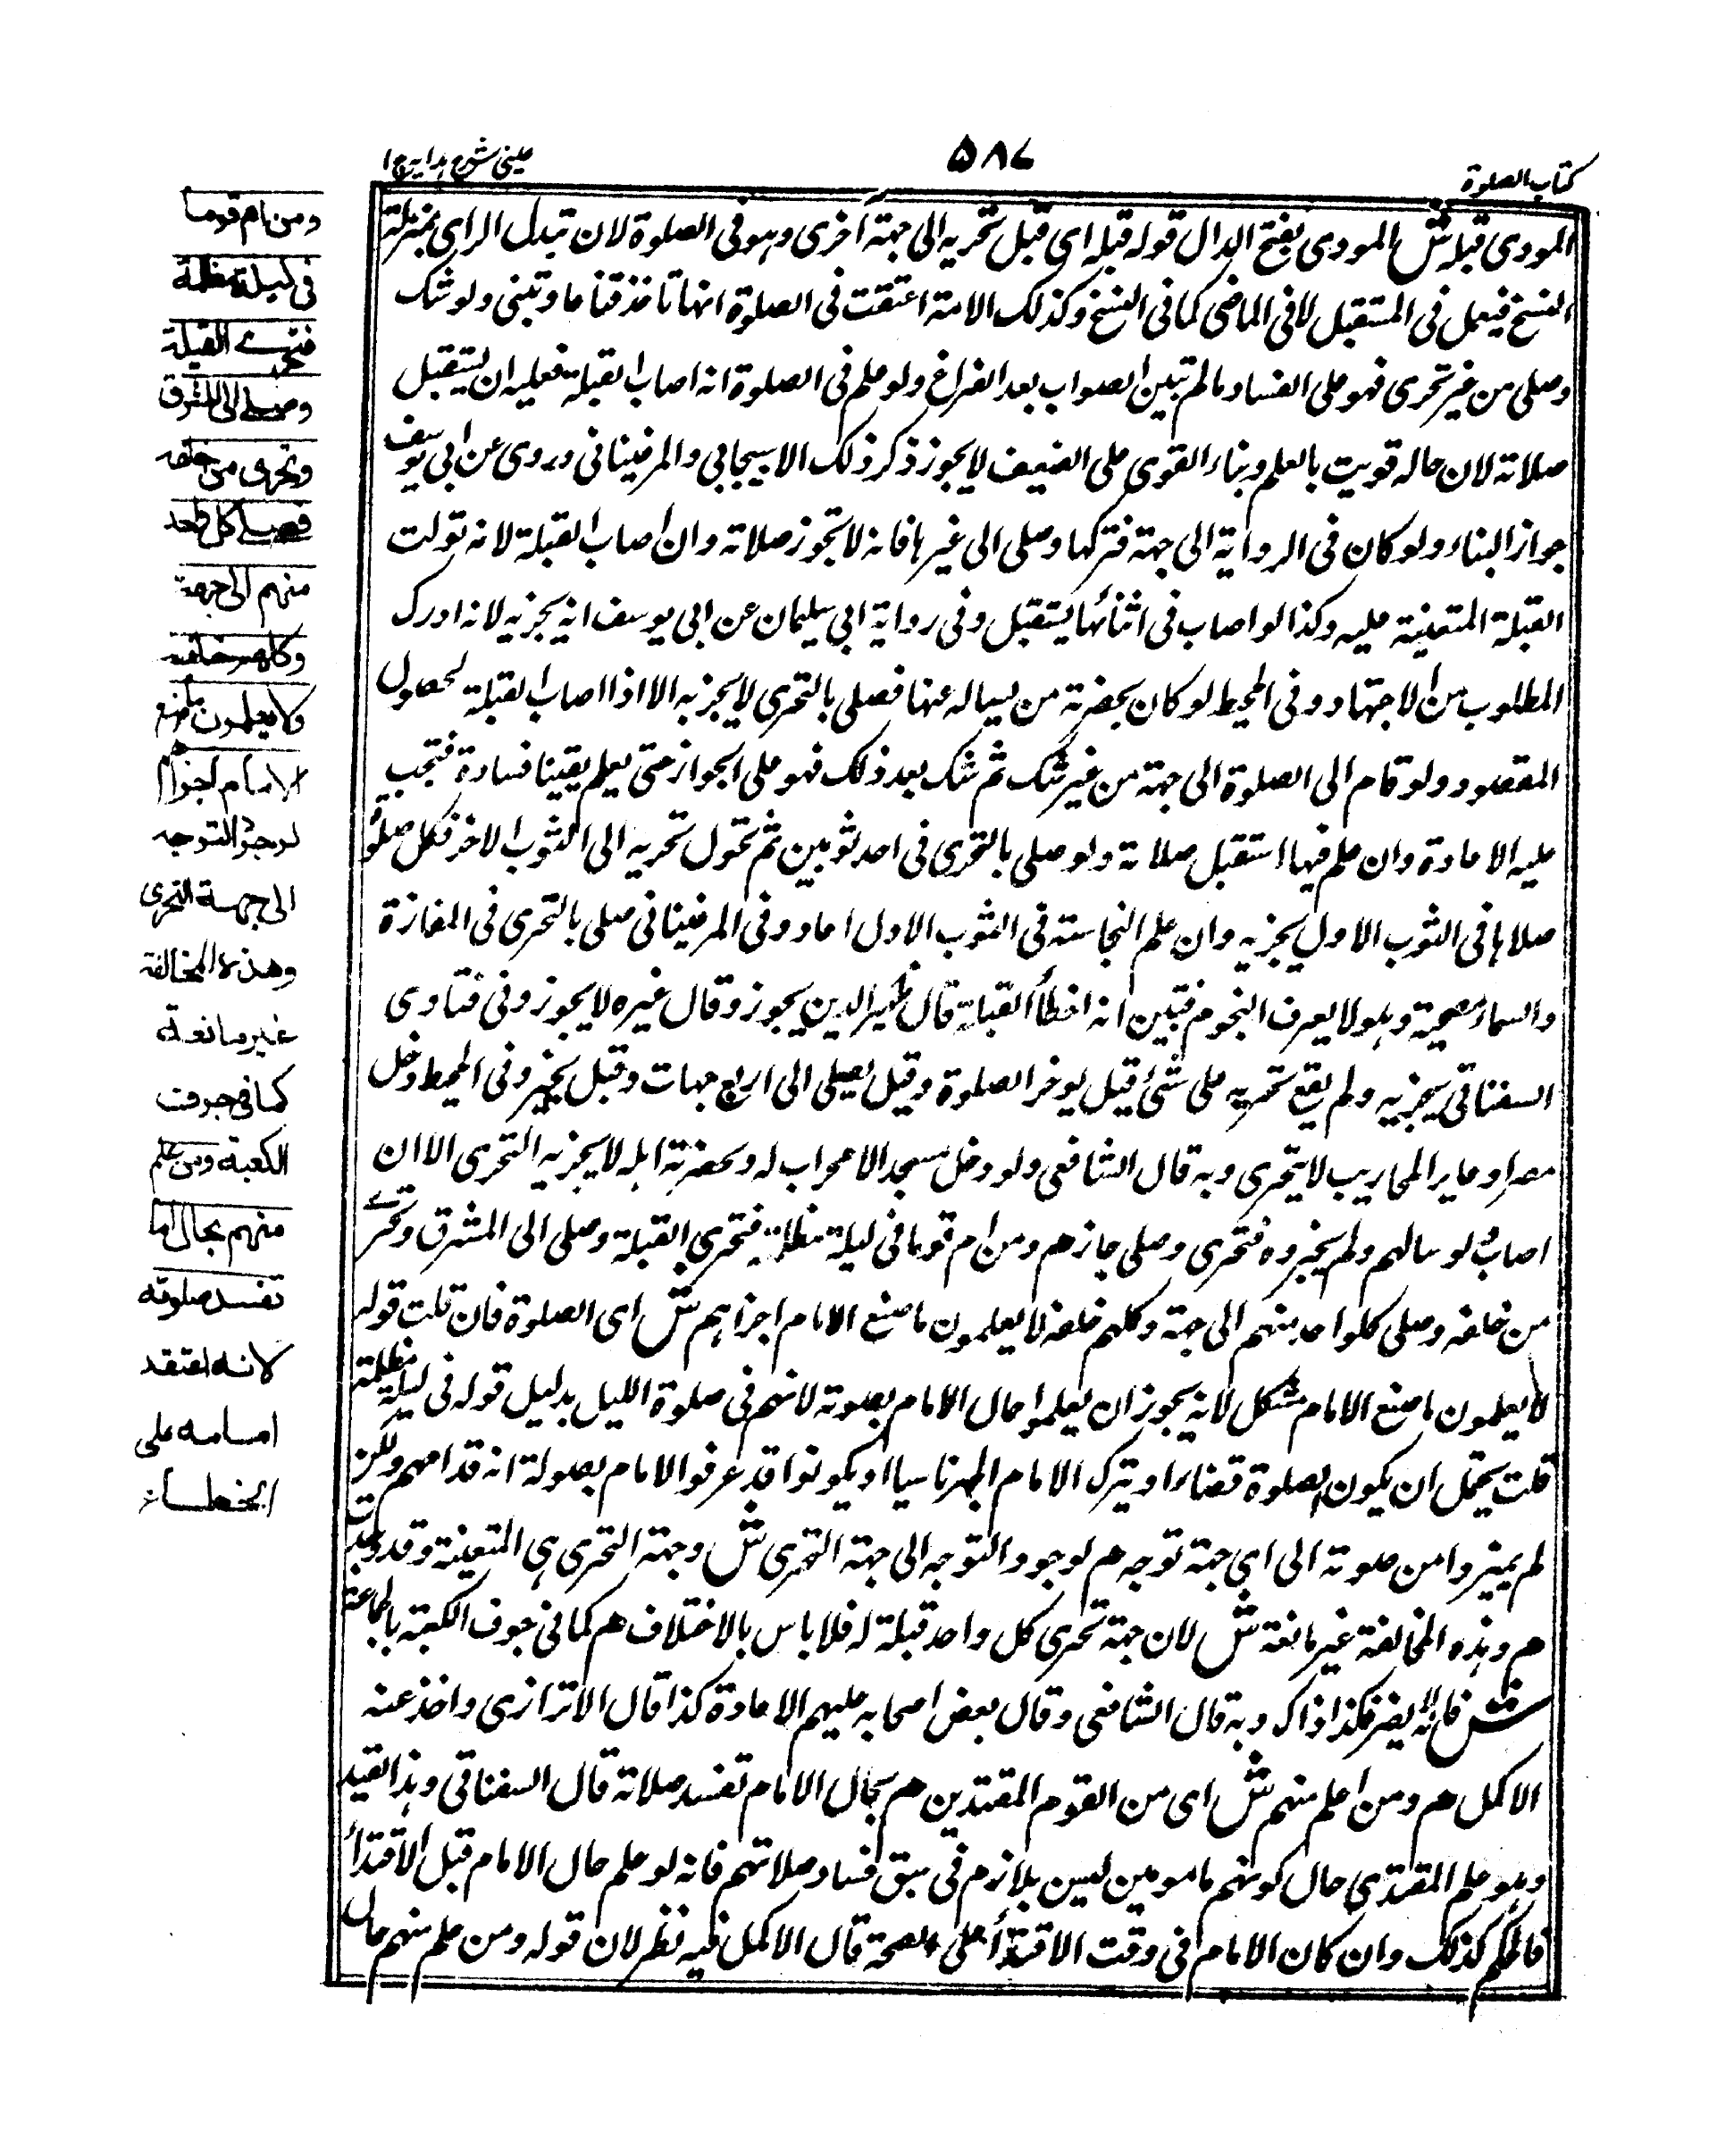 كتاب الصلوة
٥٨٧
عينى شرح هدايه ج ١
المودى قبله ش المودى بفتح الدال قوله قبله اى قبل تحريه الى جهة اخرى وهو فى الصلوة لان تبدل الراى بمنزلة
النسخ فيعمل فى المستقبل لا فى الماضى كما فى النسخ وكذلك الامة اعتقت فى الصلوة انها تاخذ قناعا وتبنى ولو شك
وصلى من غير تحرى فهو على الفساد مالم تبين الصواب بعد الفراغ ولو علم فى الصلوة انه اصاب القبلة فعليه ان يستقبل
صلاته لان حاله قويت بالعلم وبناء القوى على الضعيف لا يجوز ذكر ذلك الاسبيجابى والمرغينانى وروى عن ابى يوسف
جواز البناء ولو كان فى الرواية الى جهة فتركها وصلى الى غيرها فانه لا تجوز صلاته وان اصاب القبلة لانه تولت
القبلة المتعينة عليه وكذا لو اصاب فى اثنائها يستقبل وفى رواية ابى سليمان عن ابى يوسف انه يجزيه لانه ادرك
المطلوب من الاجتهاد وفى المحيط لو كان بحضرته من يساله عنها فصلى بالتحرى لا يجزيه الا اذا اصاب القبلة لحصول
المقصود ولو قام الى الصلوة الى جهة من غير شك ثم شك بعد ذلك فهو على الجواز متى يعلم يقينا فسادة فتجب
عليه الاعادة وان علم فيها استقبل صلاته ولو صلى بالتحرى فى احد ثوبين ثم تحول تحريه الى الثوب الاخر فكل صلوة
صلاها فى الثوب الاول يجزيه وان علم النجاسة فى الثوب الاول اعاد وفى المرغينانى صلى بالتحرى فى المفازة
والسماء مصحية وهو لا يعرف النجوم فتبين انه اخطأ القبلة قال ظهير الدين يجوز وقال غيره لا يجوز وفى فتاوى
السفناقى يجزيه ولم يقع تحريه على شئ قيل يوخر الصلوة وقيل يصلى الى اربع جهات وقيل يخير وفى المحيط دخل
مصرا وعاير المحاريب لا يتحرى وبه قال الشافعى ولو دخل مسجدا لا محراب له وبحضرته اهله لا يجزيه التحرى الا ان
اصاب ولو سالهم ولم يخبروه فتحرى وصلى جاز هم ومن ام قوما فى ليلة مظلمة فتحرى القبلة وصلى الى المشرق وتحرى
من خلفه وصلى كلوا حد منهم الى جهة وكلهم خلفه لا يعلمون ما صنع الامام اجزاهم ش اى الصلوة فان قلت قوله
لا يعلمون ما صنع الامام مشكل لانه يجوز ان يعلموا حال الامام بصوته لانهم فى صلوة الليل بدليل قوله فى ليلة مظلمة
قلت يحتمل ان يكون الصلوة قضاء او يترك الامام الجهر ناسيا او يكونوا قد عرفوا الامام بصوته انه قدامهم ولكن
لم يميزوا من صوته الى اى جهة توجه هم لوجود التوجه الى جهة التحرى ش وجهة التحرى هى المتعينة وقد وجدت
هم وهذه المخالفة غير مانعة ش لان جهة تحرى كل واحد قبلة له فلا باس بالاختلاف هم كما فى جوف الكعبة بالجماعة
ش فانه لا يضر فكذا ذاك وبه قال الشافعى وقال بعض اصحابه عليهم الاعادة كذا قال الاترازى واخذ عنه
الاكمل هم ومن اعلم منهم ش اى من القوم المقتدين هم بحال الامام تفسد صلاته قال السفناقى وهذا القيد
وهو علم المقتدى حال كونهم مامومين ليس بلازم فى سبق فساد صلاتهم فانه لو علم حال الامام قبل الاقتدأ
فالحكم كذلك وان كان الامام فى وقت الاقتدأ على الصحة قال الاكمل فيه نظر لان قوله ومن علم منهم حال
ومن ام قوما
فى ليلة مظلمة
فتحرى القبلة
وصلى الى المشرق
وتحرى من خلفه
فصلى كل واحد
منهم الى جهة
وكلهم خلفه
ولا يعلمون ما صنع
الامام اجزاهم
لوجود التوجه
الى جهة التحرى
وهذه المخالفة
غير مانعة
كما فى جوف
الكعبة ومن علم
منهم بحال امامه
تفسد صلوته
لانه اعتقد
امامه على
الخطاء